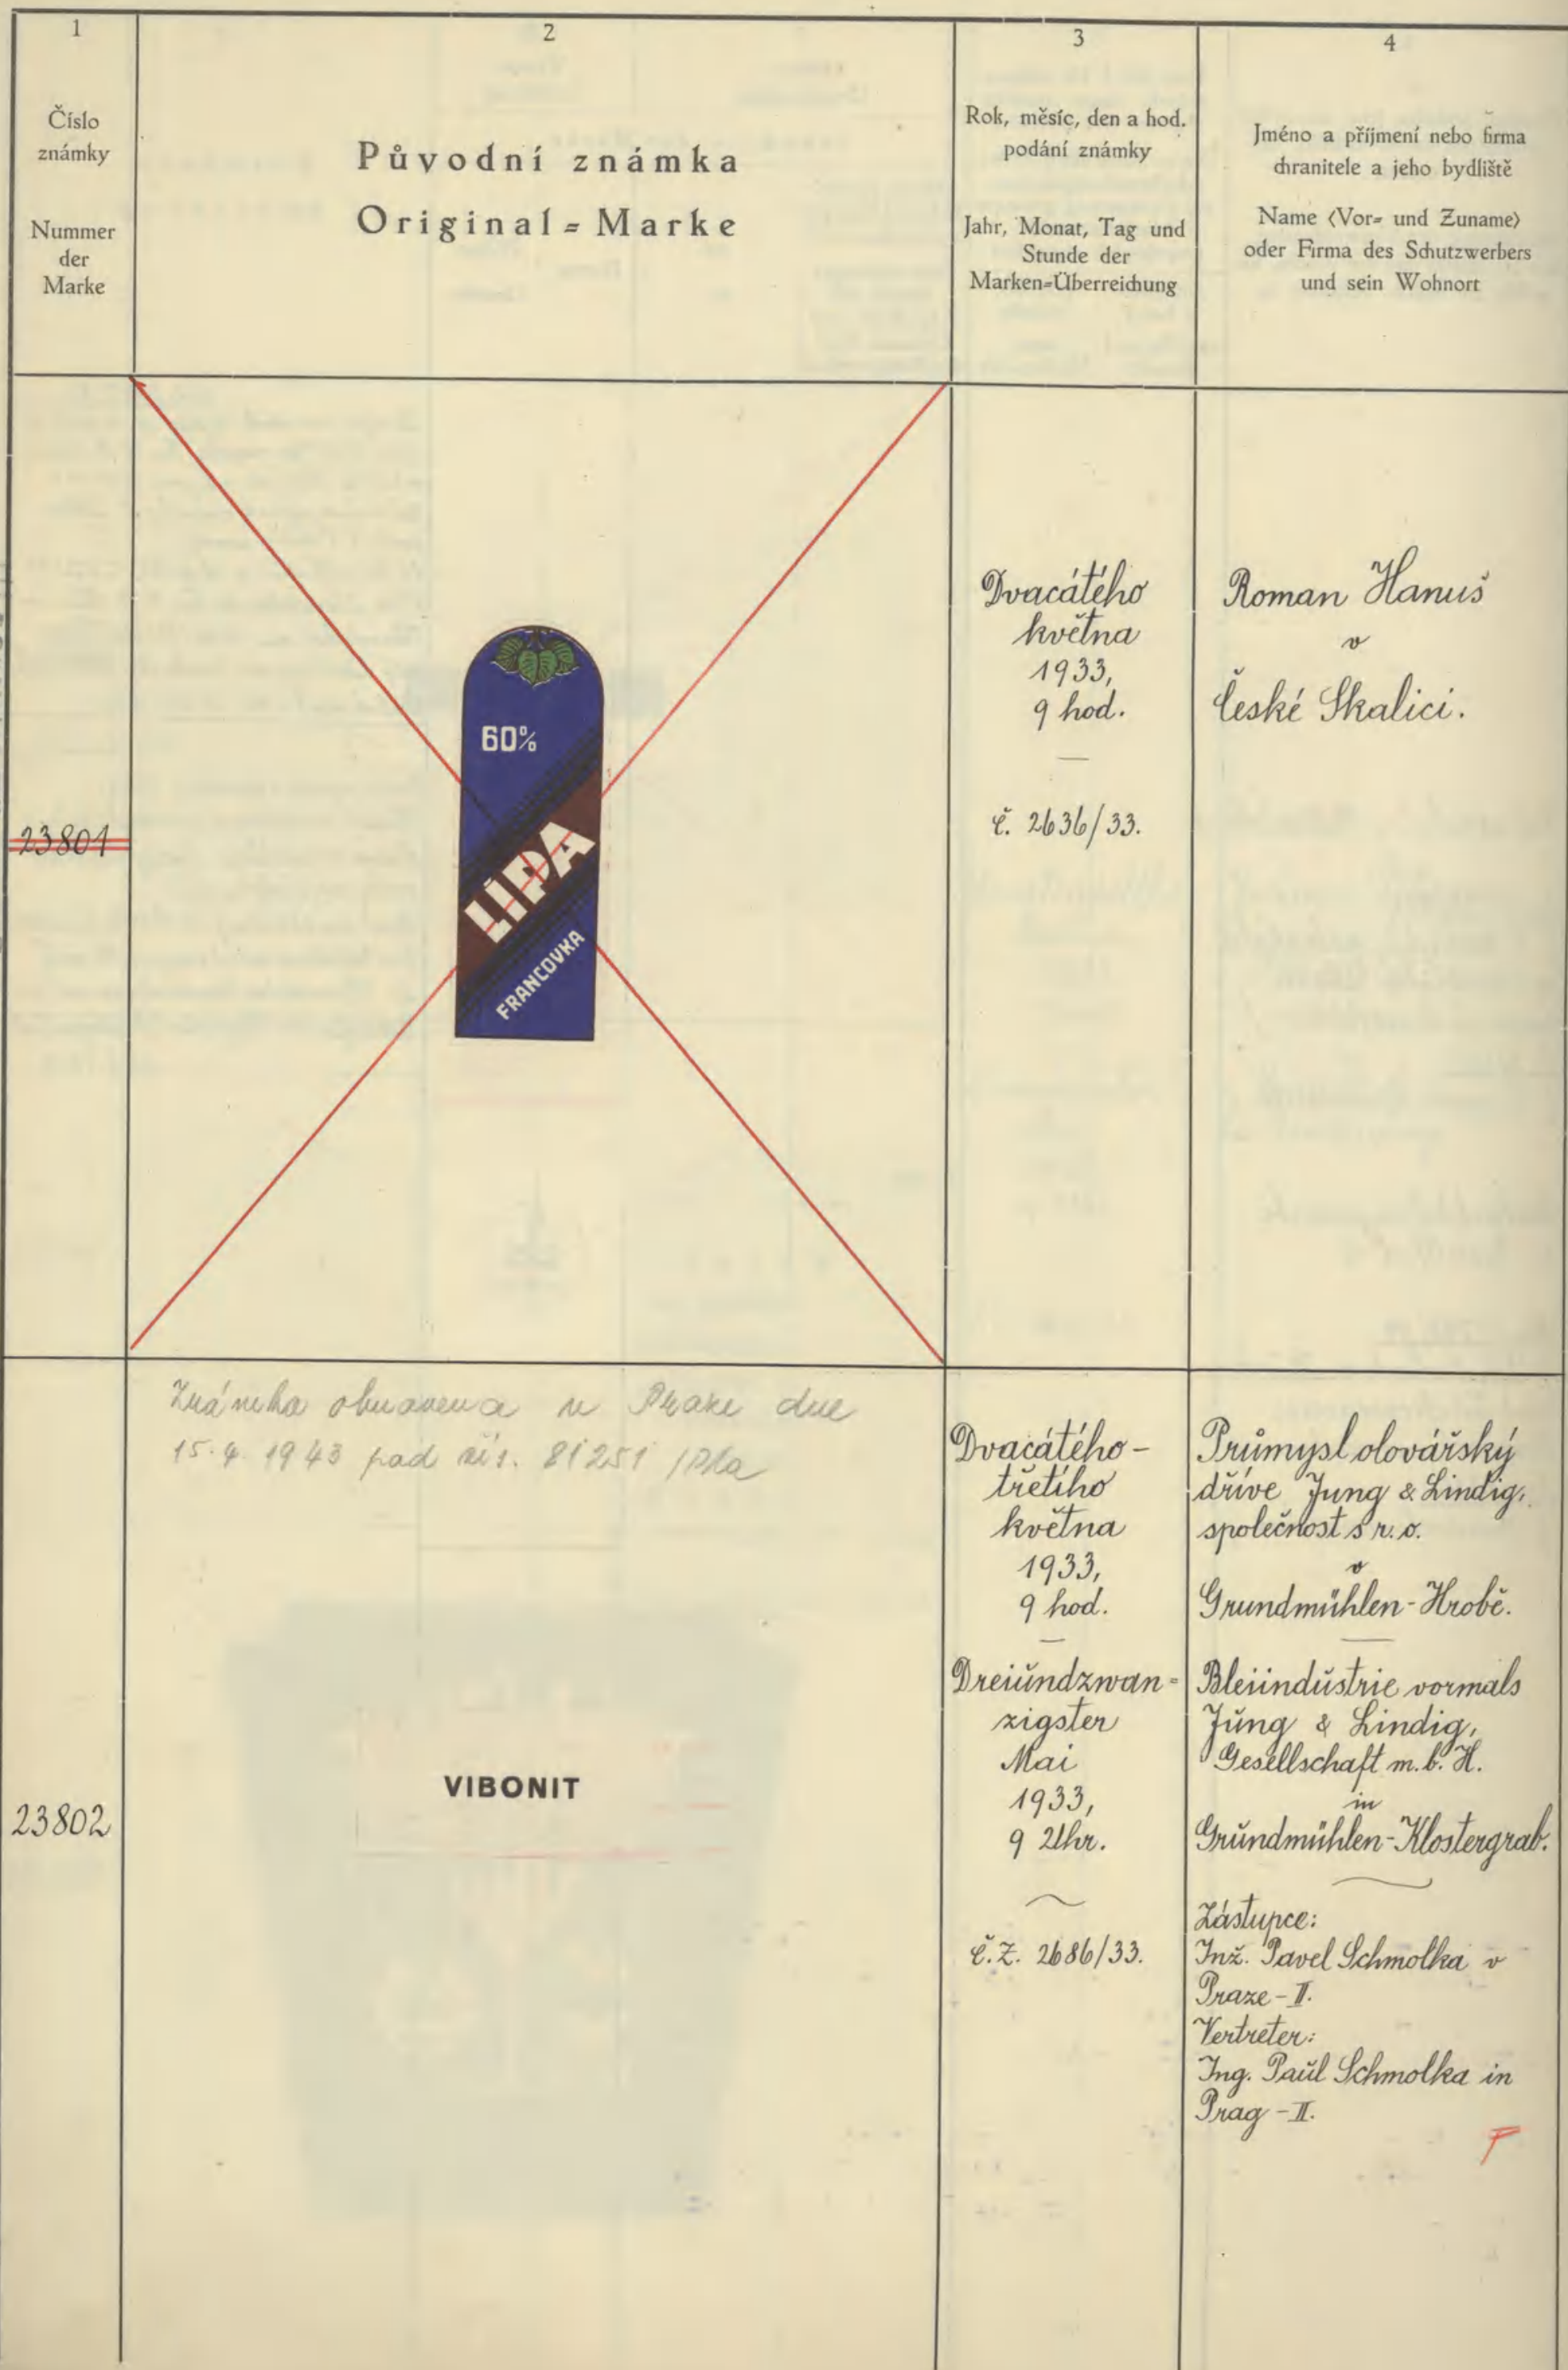 1
Číslo
známky
Nummer
der
Marke
2
Původní známka
Original=Marke
3
Rok, měsíc, den a hod.
podání známky
Jahr, Monat, Tag und
Stunde der
Marken=Überreichung
4
Jméno a příjmení nebo firma
chranitele a jeho bydliště
Name (Vor= und Zuname)
oder Firma des Schutzwerbers
und sein Wohnort
23801
60%
LÍPA
FRANCOVKA
Dvacátého
května
1933,
9 hod.
č. 2636/33.
Roman Hanuš
v
České Skalici.
23802
Známka obnovena v Praze dne
15.4.1943 pod čís. 81251
VIBONIT
Dvacátého-
třetího
května
1933,
9 hod.
Dreiŭndzwan=
zigster
Mai
1933,
9 Uhr.
č.Z. 2686/33.
Průmysl olovářský
dříve Jung & Lindig,
společnost s r. o.
v
Grundmühlen-Hrobě.
Bleiindŭstrie vormals
Jŭng & Lindig,
Gesellschaft m. b. H.
in
Grŭndmühlen-Klostergrab.
Zástupce:
Inž. Pavel Schmolka v
Praze-II.
Vertreter:
Ing. Paŭl Schmolka in
Prag-II.